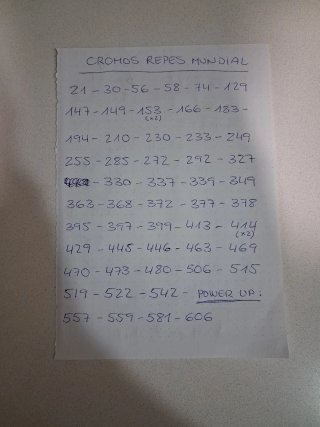 CROMOS REPES MUNDIAL
21 - 30 - 56 - 58 - 74 - 129
147 - 149 - 153 - 166 - 183 -
(x2)
194 - 210 - 230 - 233 - 249
255 - 285 - 272 - 292 - 327
- 330 - 337 - 339 - 349
363 - 368 - 372 - 377 - 378
395 - 397 - 399 - 413 - 414
(x2)
429 - 445 - 446 - 463 - 469
470 - 473 - 480 - 506 - 515
519 - 522 - 542 - POWER UP:
557 - 559 - 581 - 606